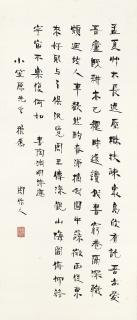 孟夏草木長遶屋樹扶疏衆鳥欣有託吾亦愛
吾廬既耕亦已種時還讀我書窮巷隔深轍
頗迴故人車歡然酌春酒摘我園中蔬微雨從東
來好風與之俱汎覽周王傳流觀山海圖俯仰終
宇宙不樂復何如 書陶淵明詩應
小笠原先生 雅屬 周作人